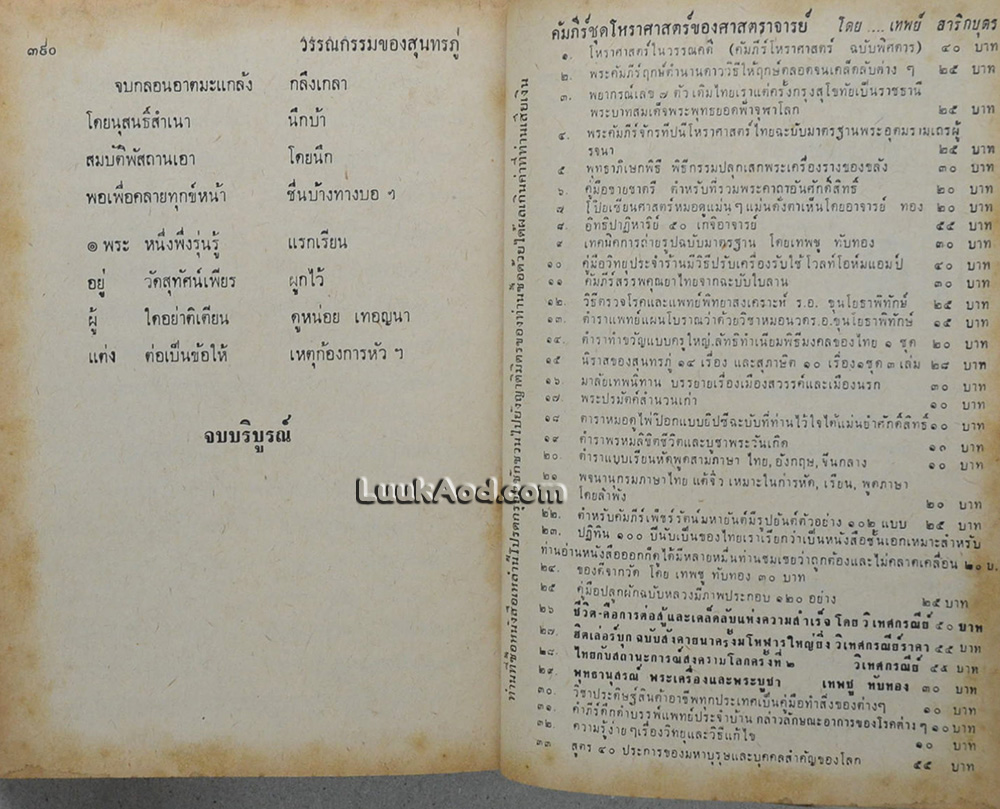 ๓๙๐ วรรณกรรมของสุนทรภู่
จบกลอนอาตมะแกลัง กลึงเกลา
โดยนุสนธิ์สำเนา นึกบ้า
สมบัติพัสถานเอา โดยนึก
พอเพื่อคลายทุกข์หน้า ชื่นบ้างทางบอ ฯ
๏ พระ หนึ่งพึ่งรุ่นรู้ แรกเรียน
อยู่ วัดสุทัศน์เพียร ผูกไว้
ผู้ ใดอย่าติเตียน ดูหน่อย เทอญนา
แต่ง ต่อเป็นข้อให้ เหตุก้องการหัว ฯ
จบบริบูรณ์
ท่านที่ซื้อหนังสือเหล่านี้โปรดกรุณาชักชวนไปยังญาติมิตรของท่านซื้อด้วยได้ผลเกินค่าที่ท่านเสียเงิน
คัมภีร์ชุดโหราศาสตร์ของศาสตราจารย์ โดย .... เทพย์ สาริกบุตร
๑. โหราศาสตร์ในวรรณคดี (คัมภีร์โหราศาสตร์ ฉบับพิศดาร) ๔๐ บาท
๒. พระคัมภีร์ฤกษ์ตำนานดาววิธีให้ฤกษ์ตลอดจนเคล็ดลับต่าง ๆ ๒๕ บาท
๓. พยากรณ์เลข ๗ ตัว เดิมไทยเราแต่ครั้งกรุงสุโขทัยเป็นราชธานี
พระบาทสมเด็จพระพุทธยอดฟ้าจุฬาโลก ๒๕ บาท
๔. พระคัมภีร์จักรทีปนีโหราศาสตร์ไทยฉะบับมาตรฐานพระอุดมรามเถรผู้
รจนา ๒๕ บาท
๕ พุทธาภิเษกพิธี พิธีกรรมปลุกเสกพระเครื่องรางของขลัง ๓๐ บาท
๖. คู่มือชายชาตรี ตำหรับที่รวมพระคาถาอันศักดิ์สิทธิ์ ๒๐ บาท
๗ ไปยเซียนศาสตร์หมอดูแม่นๆแม่นดั่งตาเห็นโดยอาจารย์ ทอง ๒๐ บาท
๘. อิทธิปาฏิหาริย์ ๕๐ เกจิอาจารย์ ๕๕ บาท
๙ เทคนิคการถ่ายรูปฉบับมาตรฐาน โดยเทพชู ทับทอง ๓๐ บาท
๑๐ คู่มือวิทยุประจำร้านมีวิธีปรับเครื่องรับใช้โวลท์โอห์มแอมป์ ๔๐ บาท
๑๑ คัมภีร์สรรพคุณยาไทยจากฉะบับใบลาน ๓๐ บาท
๑๒. วิธีตรวจโรคและแพทย์พิทยาสงเคราะห์ ร.อ. ขุนโยธาพิทักษ์ ๒๕ บาท
๑๓. ตำราแพทย์แผนโบราณว่าด้วยวิชาหมอนวดร.อ.ขุนโยธาพิทักษ์ ๑๕ บาท
๑๔. ตำราทำขวัญแบบครูใหญ่.ลัทธิทำเนียมพิธีมงคลของไทย ๑ ชุด ๒๐ บาท
๑๕ นิราสของสุนทรภู่ ๑๔ เรื่อง และสุภาษิต ๑๐ เรื่อง๑ชุด ๓ เล่ม ๒๘ บาท
๑๖. มาลัยเทพนิทาน บรรยายเรื่องเมืองสวรรค์และเมืองนรก ๓๐ บาท
๑๗. พระปรมัตถ์สำนวนเก่า ๑๐ บาท
๑๘ ตาราหมอดูไพ่ป๊อกแบบยิปซีฉะบับที่ท่านไว้ใจได้แม่นยำศักดิ์สิทธิ์ ๑๐ บาท
๑๙ ตำราพรหมลิขิตชีวิตและบูชาพระวันเกิด ๑๐ บาท
๒๐. ตำราแบบเรียนหัดพูดสามภาษา ไทย, อังกฤษ, จีนกลาง ๑๐ บาท
๒๑ พจนานุกรมภาษาไทย แต้จิ๋ว เหมาะในการหัด, เรียน, พูดภาษา
โดยลำพัง ๒๐ บาท
๒๒. ตำหรับคัมภีร์เพ็ชร์รัตน์มหายันต์มีรูปยันต์ตัวอย่าง ๑๐๒ แบบ ๒๕ บาท
๒๓. ปฏิทิน ๑๐๐ ปีนับเป็นของไทยเราเรียกว่าเป็นหนังสือชั้นเอกเหมาะสำหรับ
ท่านอ่านหนังสือออกก็ดูได้มีหลายหมื่นท่านชมเชยว่าถูกต้องและไม่คลาดเคลื่อน ๒๐ บ.
๒๔. ของดีจากวัด โดย เทพชู ทับทอง ๓๐ บาท
๒๕ คู่มือปลูกผักฉบับหลวงมีภาพประกอบ ๑๒๐ อย่าง ๒๕ บาท
๒๖ ชีวิต-คือการต่อสู้และเคล็ดลับแห่งความสำเร็จ โดย วิเทศกรณีย์ ๕๐ บาท
๒๗. ฮิตเล่อร์บุก ฉบับสงครามรบครั้งมโหฬารใหญ่ยิ่ง วิเทศกรณีย์ราคา ๕๕ บาท
๒๘. ไทยกับสถานะการณ์สงครามโลกครั้งที่ ๒ วิเทศกรณีย์ ๕๕ บาท
๒๙. พุทธานุสรณ์ พระเครื่องและพระบูชา เทพชู ทับทอง ๓๐ บาท
๓๐. วิชาประดิษฐ์สินค้าอาชีพทุกประเทศเป็นคู่มือทำสิ่งของต่างๆ ๑๐ บาท
๓๑. คำภีร์ตักคำบรรพ์แพทย์ประจำบ้าน กล่าวลักษณะอาการของโรคต่าง ๆ ๑๐ บาท
๓๒. ความรู้ง่ายๆเรื่องวิทยุและวิธีแก้ไข ๑๐ บาท
๓๓ สูตร ๔๐ ประการของมหาบุรุษและบุคคลสำคัญของโลก ๕๕ บาท
LuukAod.com